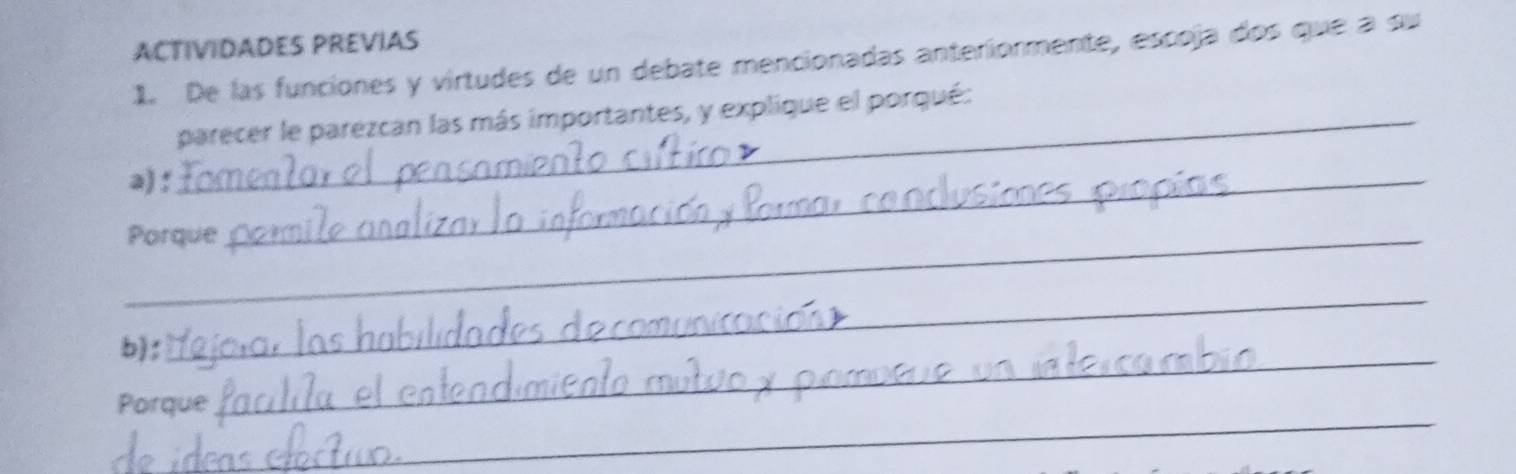 ACTIVIDADES PREVIAS
1. De las funciones y virtudes de un debate mencionadas anteriormente, escoja dos que a su
parecer le parezcan las más importantes, y explique el porqué:
a): Fomentar el pensamiento crítico
Porque permite analizar la información y formar conclusiones propias
b): Mejorar las habilidades de comunicación
Porque facilita el entendimiento mutuo y promueve un intercambio
de ideas efectivo.